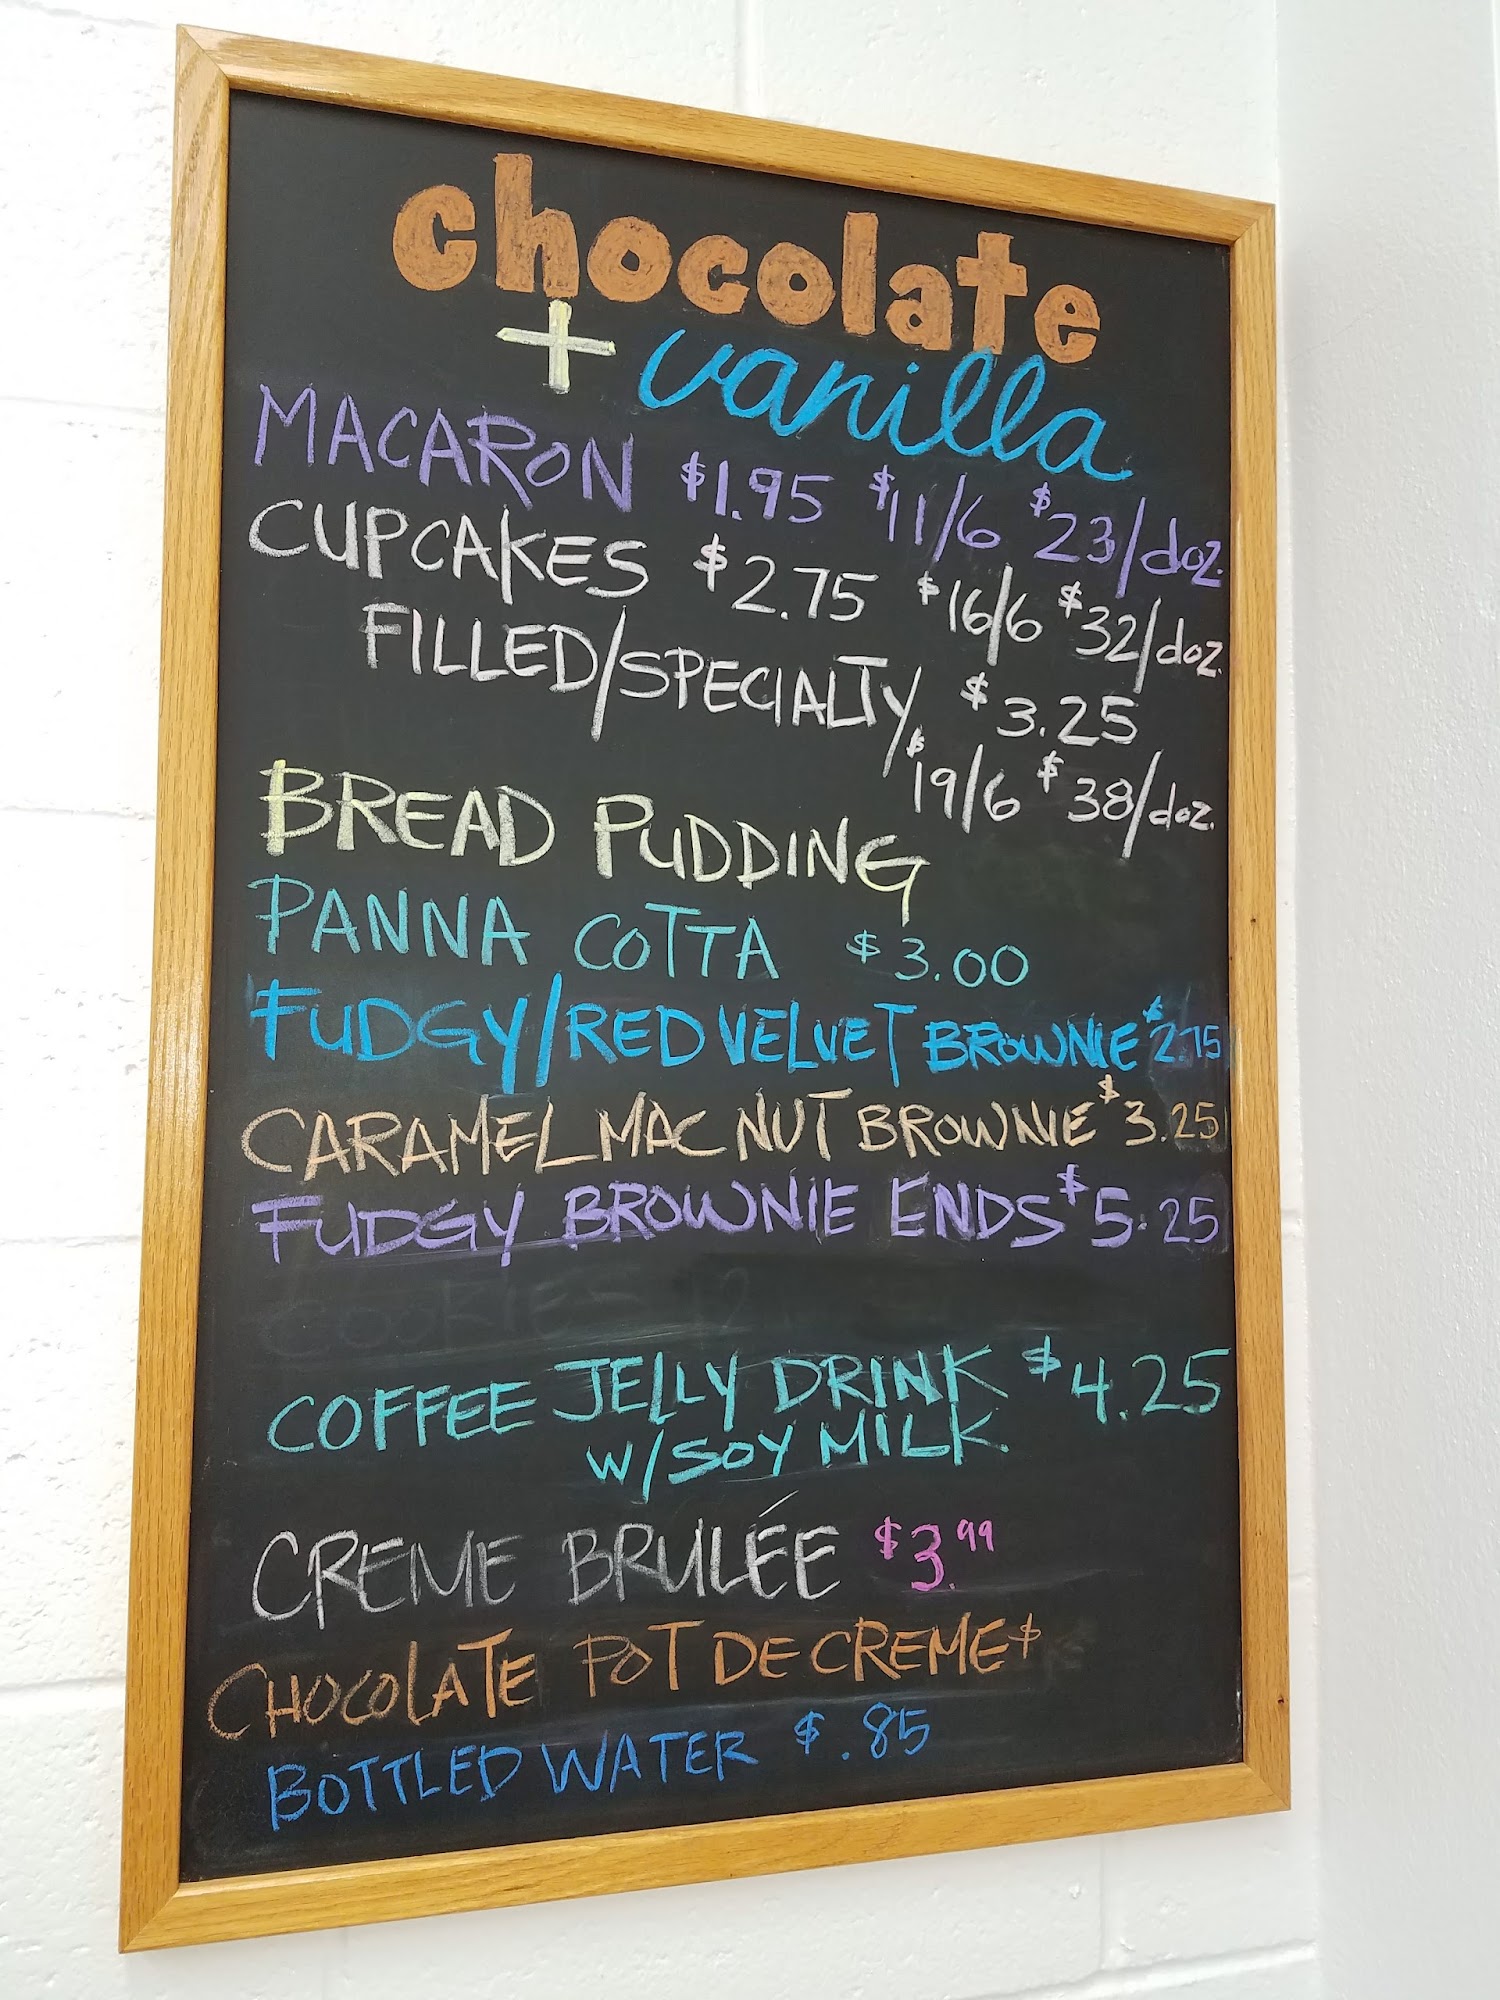 chocolate
+ vanilla
MACARON $1.95 $11/6 $23/doz.
CUPCAKES $2.75 $16/6 $32/doz.
FILLED/SPECIALTY $3.25
$19/6 $38/doz.
BREAD PUDDING
PANNA COTTA $3.00
FUDGY/RED VELVET BROWNIE $2.75
CARAMEL MAC NUT BROWNIE $3.25
FUDGY BROWNIE ENDS $5.25
COOKIES
COFFEE JELLY DRINK $4.25
W/SOY MILK
CREME BRULÉE $3.99
CHOCOLATE POT DE CREME $
BOTTLED WATER $.85